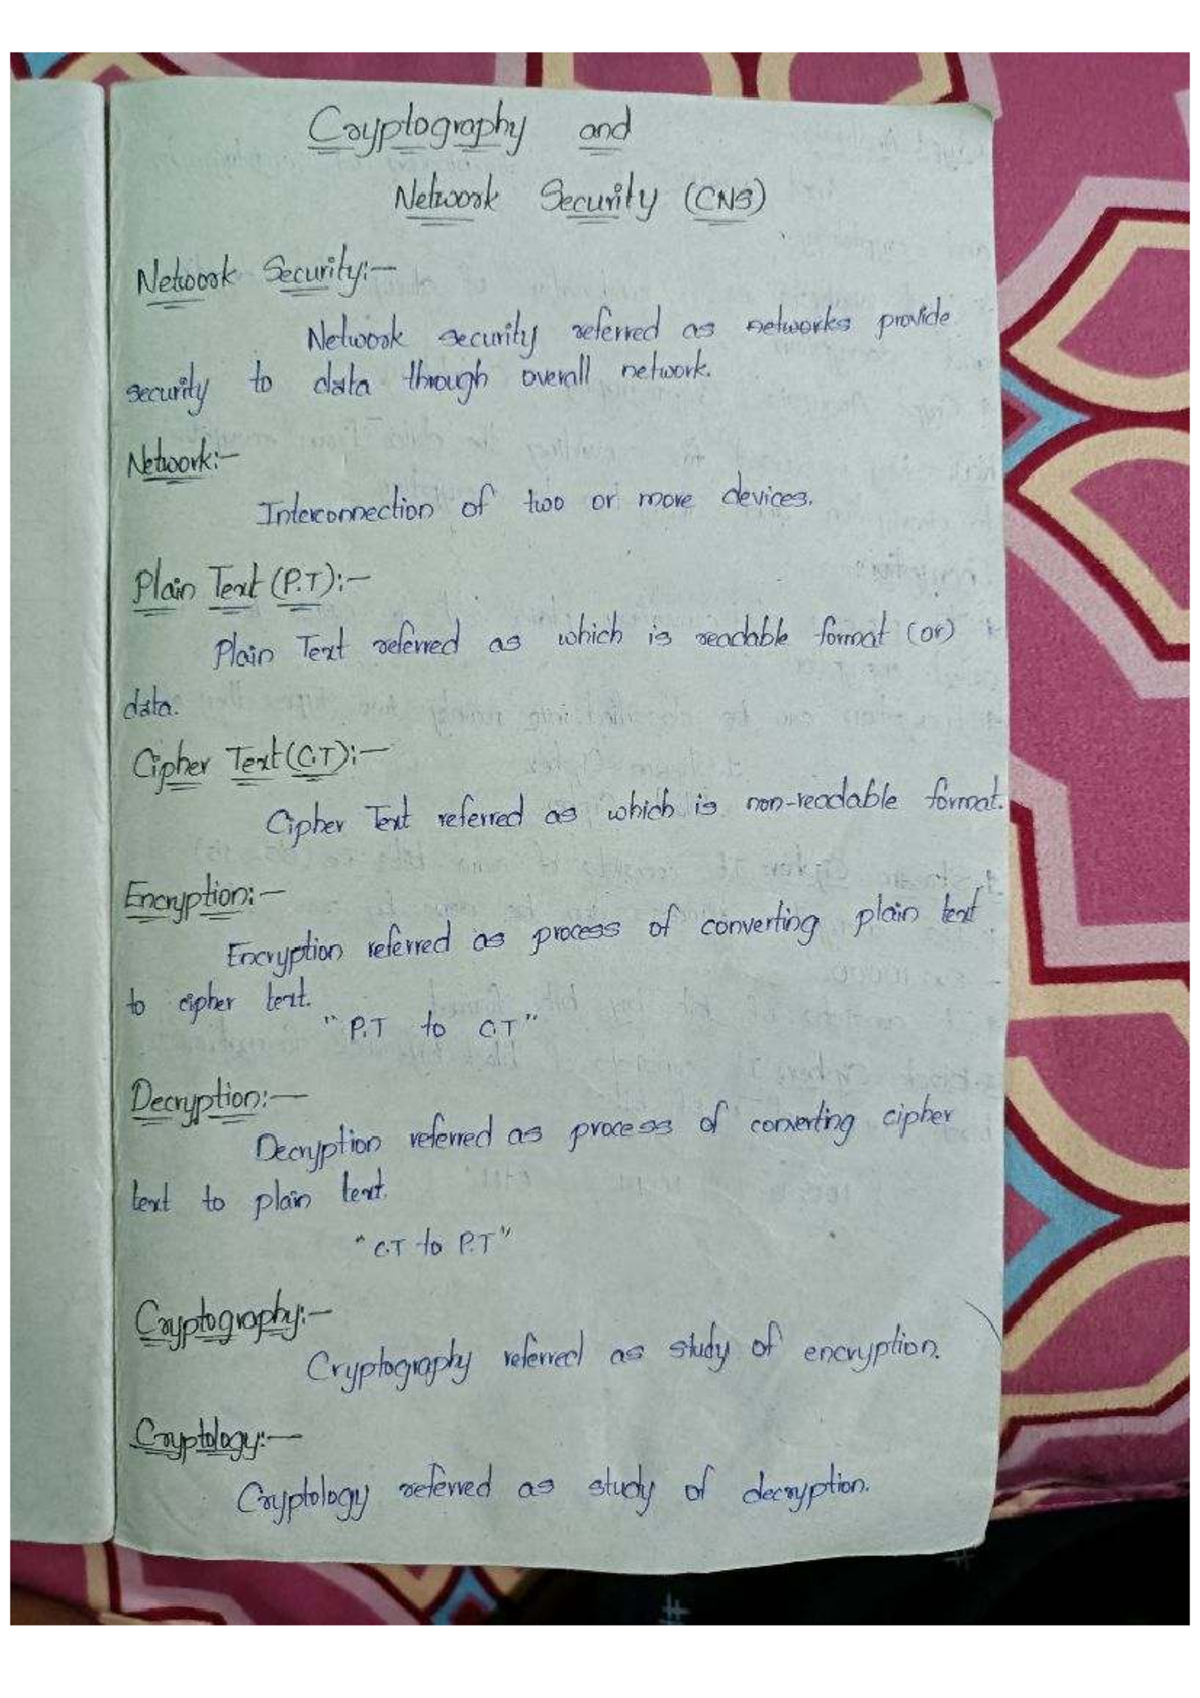 Cryptography and
Network Security (CNS)
Network Security:-
Network security referred as networks provide
security to data through overall network.
Network:-
Interconnection of two or more devices.
Plain Text (P.T):-
Plain Text referred as which is readable format (or)
data.
Cipher Text (C.T):-
Cipher Text referred as which is non-readable format.
Encryption:-
Encryption referred as process of converting plain text
to cipher text.
"P.T to C.T"
Decryption:-
Decryption referred as process of converting cipher
text to plain text.
"C.T to P.T"
Cryptography:-
Cryptography referred as study of encryption.
Cryptology:-
Cryptology referred as study of decryption.